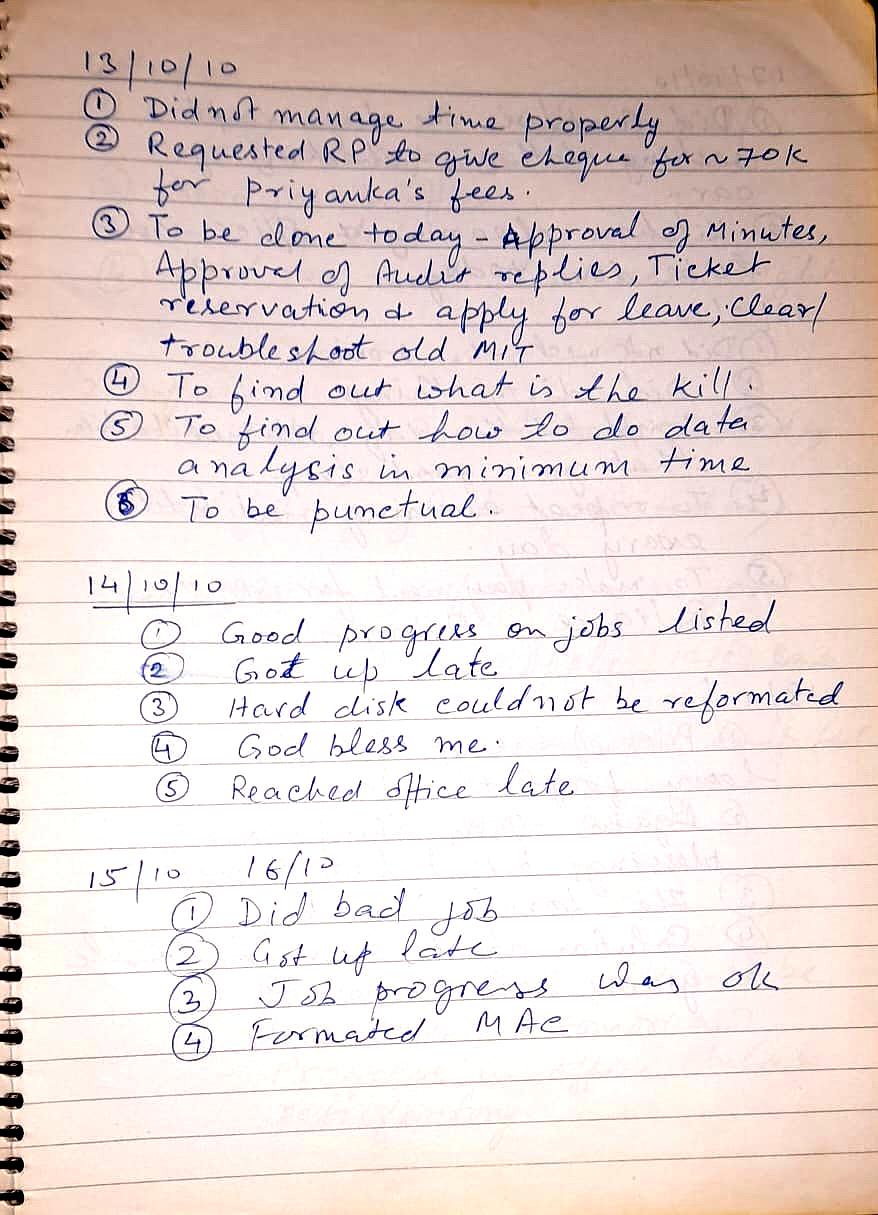 13/10/10
① Did not manage time properly
② Requested RP to give cheque for ~ 70K
for Priyanka's fees.
③ To be done today - Approval of Minutes,
Approval of Audit replies, Ticket
reservation & apply for leave, Clear/
troubleshoot old MIT
④ To find out what is the kill.
⑤ To find out how to do data
analysis in minimum time
⑥ To be punctual.
14/10/10
① Good progress on jobs listed
② Got up late
③ Hard disk could not be reformated
④ God bless me.
⑤ Reached office late
15/10 16/10
① Did bad job
② Got up late
③ Job progress was ok
④ Formated MAC